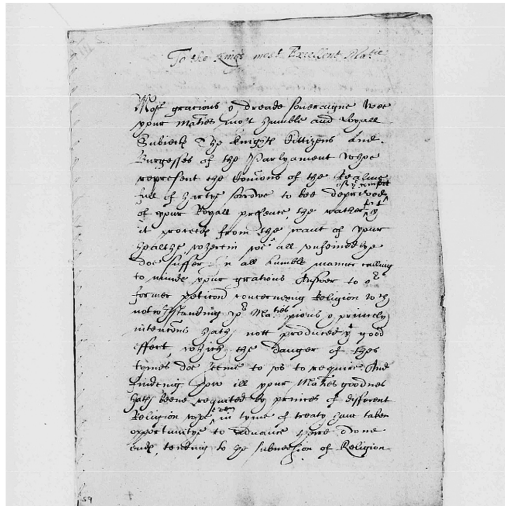 To the Kings most Excellent Matie
Most gracious & dreade soueraigne Wee
your Maties most humble and loyall
Subiects The knights Cittizens And
Burgesses of the Parlyament whoe
represent the Comons of the Realme
full of harty sorrow to bee depriued
of your Royall presence the rather
it proceeds from the want of your
health wherein wee all unfeinedlye
doe suffer In all humble manner calling
to minde your gratious Answer to
former petition concerning Religion
notwthstanding yor Maties pious & princely
intentions hath nott produced yt good
effect which the danger of thes
tymes doe seeme to us to require And
finding how ill your Maties goodnes
hath beene requited by princes of different
Religion whoe euen in tyme of treaty haue taken
opportunitye to aduance their owne
ends tending to the subuersion of Religion
59